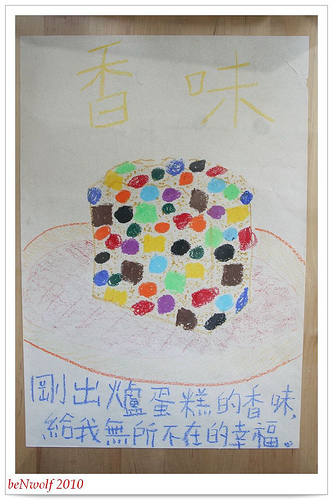 香味
剛出爐蛋糕的香味,
給我無所不在的幸福。
beNwolf 2010